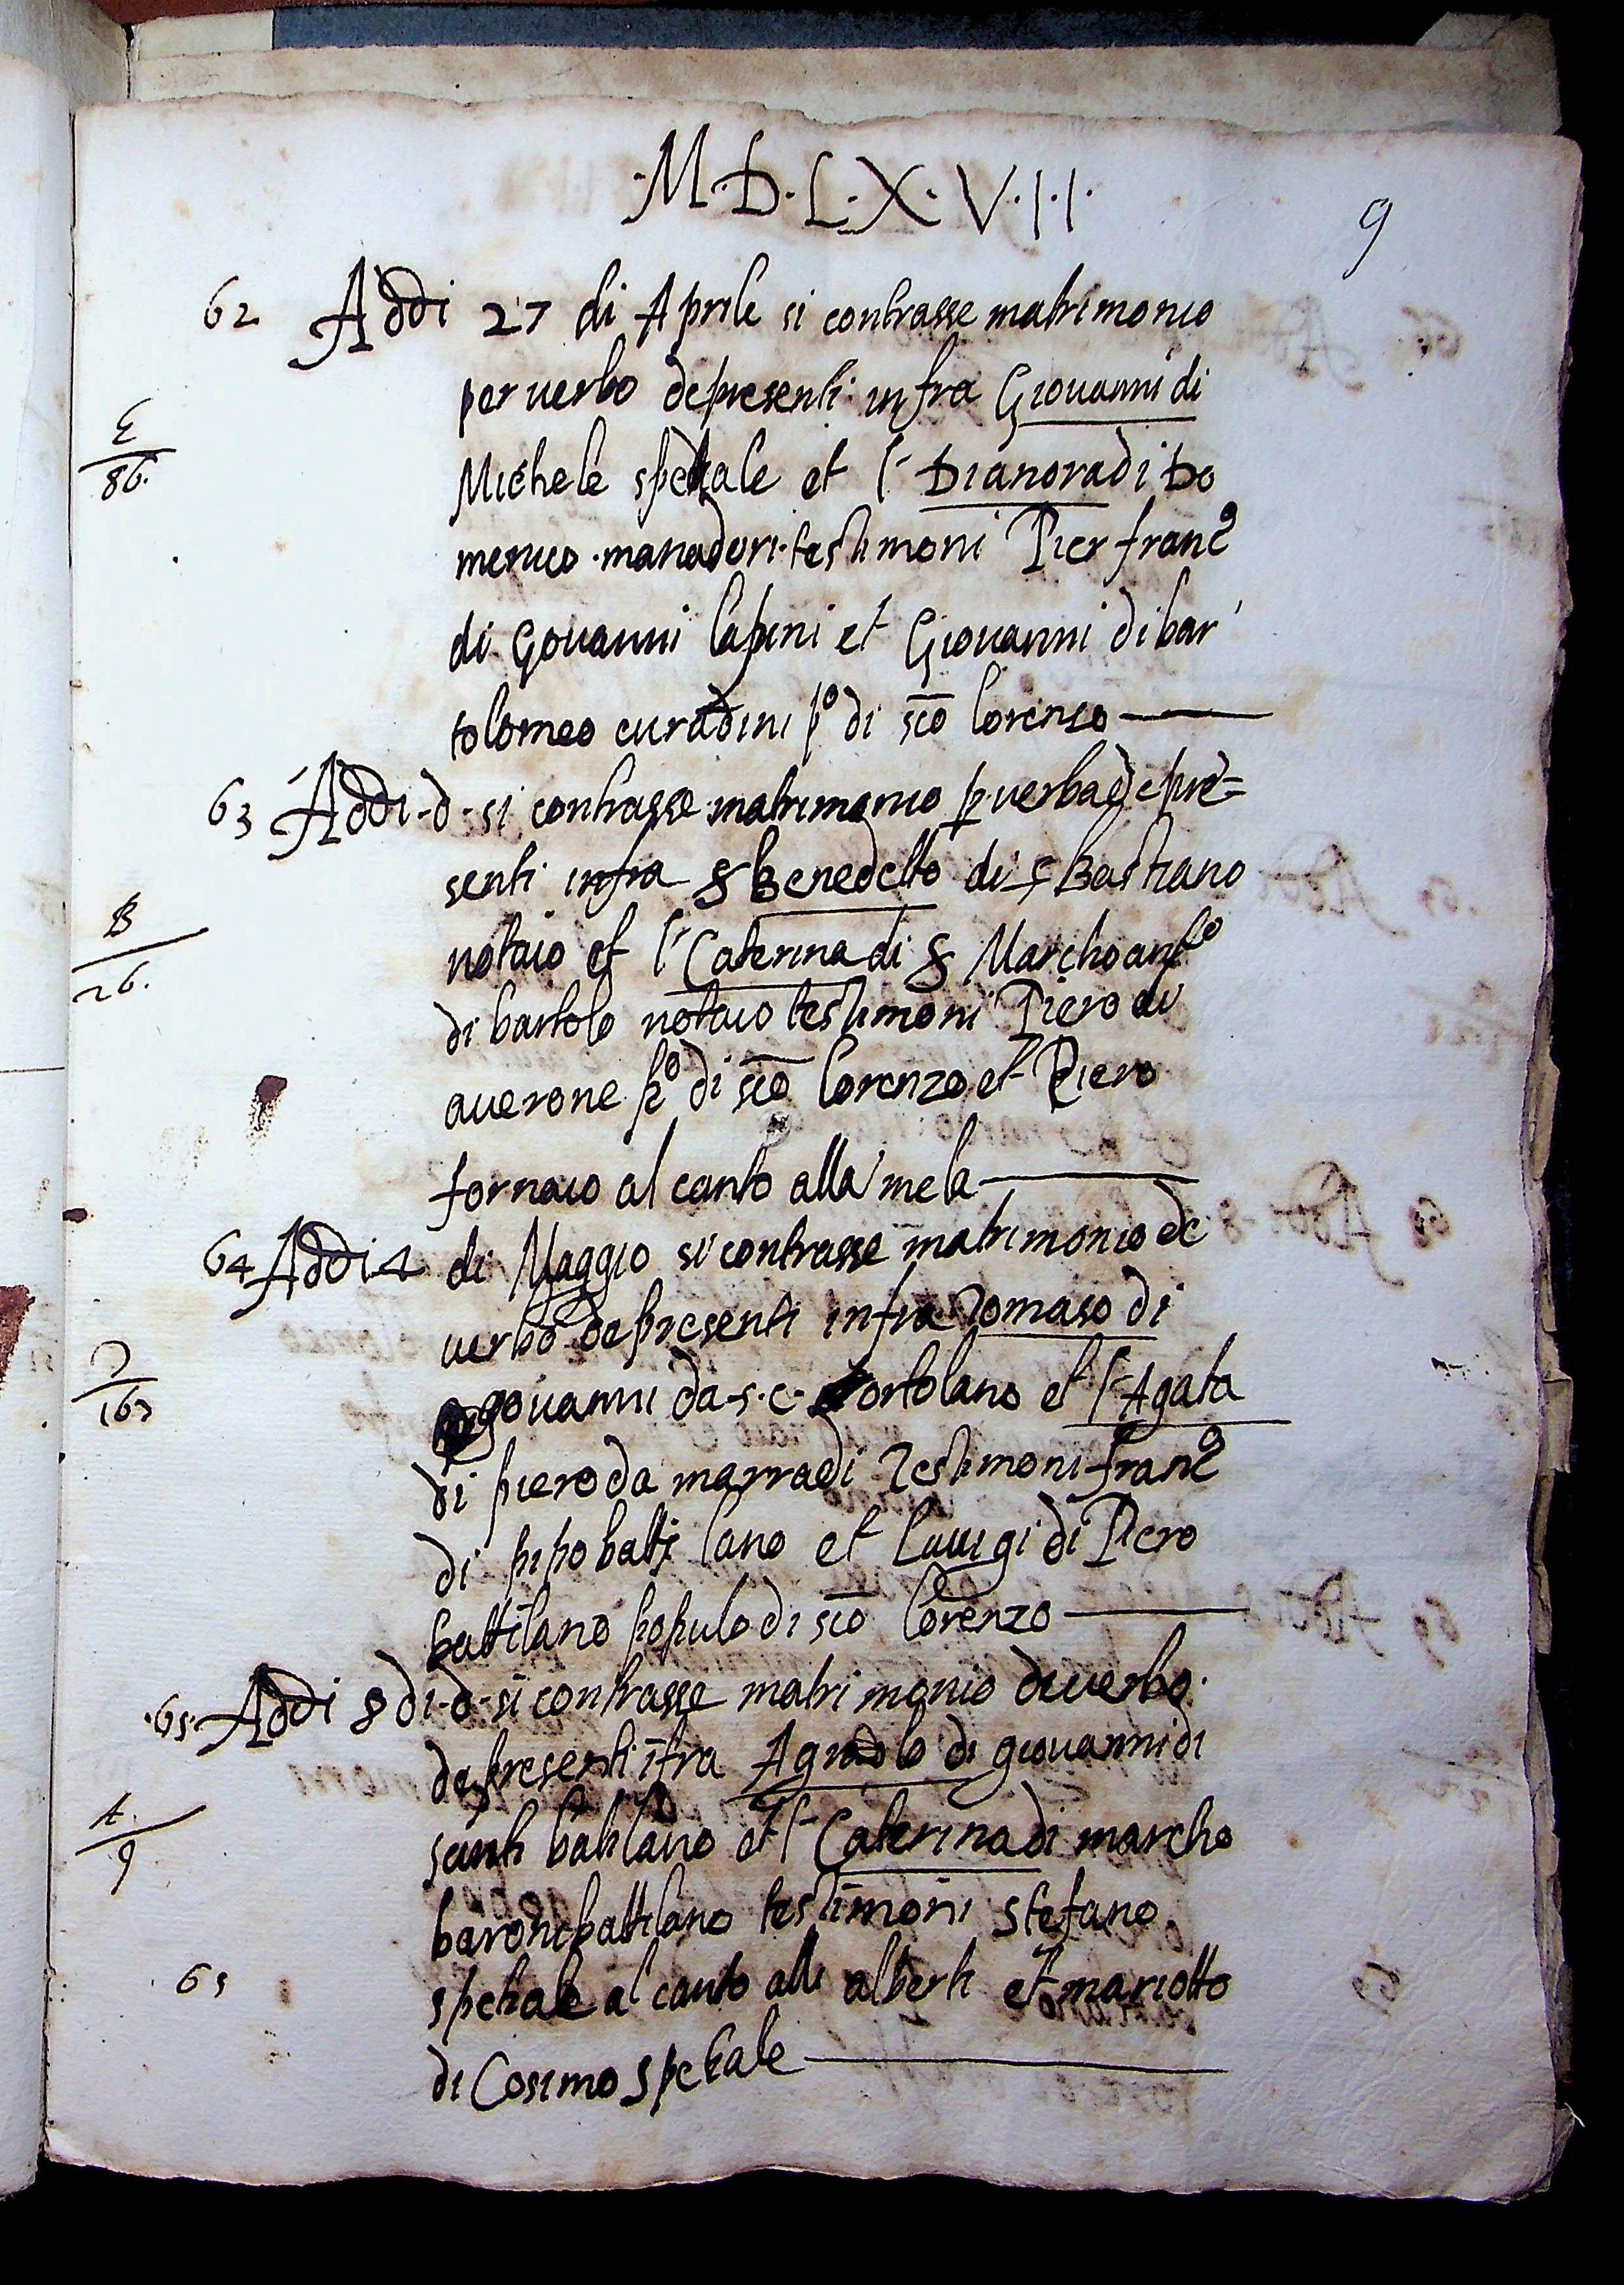 ·M·D·L·X·V·I·I·
9
62 Addi 27 di Aprile si contrasse matrimonio
per verbo depresenti infra Giovanni di
E
86.
Michele spetiale et l' Dianora di Do
menico manadori testimoni Pier franco
di Govanni lapini et Giovanni di bar
tolomeo curadini po di sco lorenzo
63 Addi d si contrasse matrimonio p verba de pre=
senti infra S Benedetto di S Bastiano
B
26.
notaio et l' Caterina di S Marchoanto
di bartolo notaio testimoni Piero di
averone po di sco lorenzo et Piero
fornaio al canto alla mela
64 Addi 4 di Maggio si contrasse matrimonio de
verbo de presenti infra Tomaso di
163
govanni da s. c. ortolano et l' Agata
di piero da marradi testimoni franco
di pipo batti lano et luuigi di Piero
battilano populo di sco lorenzo
·65· Addi 8 di d si contrasse matrimonio de verbo
de presenti ifra Agnolo di giovanni di
A.
9
santi batilano et l' Caterina di marcho
barone battilano testimoni Stefano
65
spetiale al canto alli alberti et mariotto
di Cosimo Spetiale